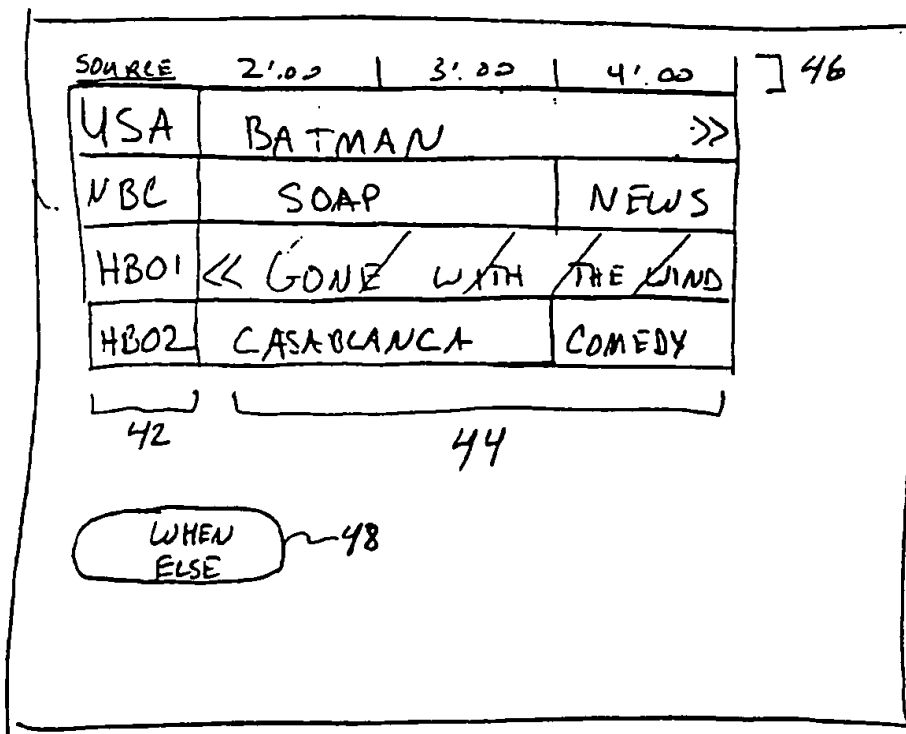 SOURCE 2:00 3:00 4:00 46
USA BATMAN >>
NBC SOAP NEWS
HBO1 << GONE WITH THE WIND
HBO2 CASABLANCA COMEDY
42 44
WHEN 48
ELSE